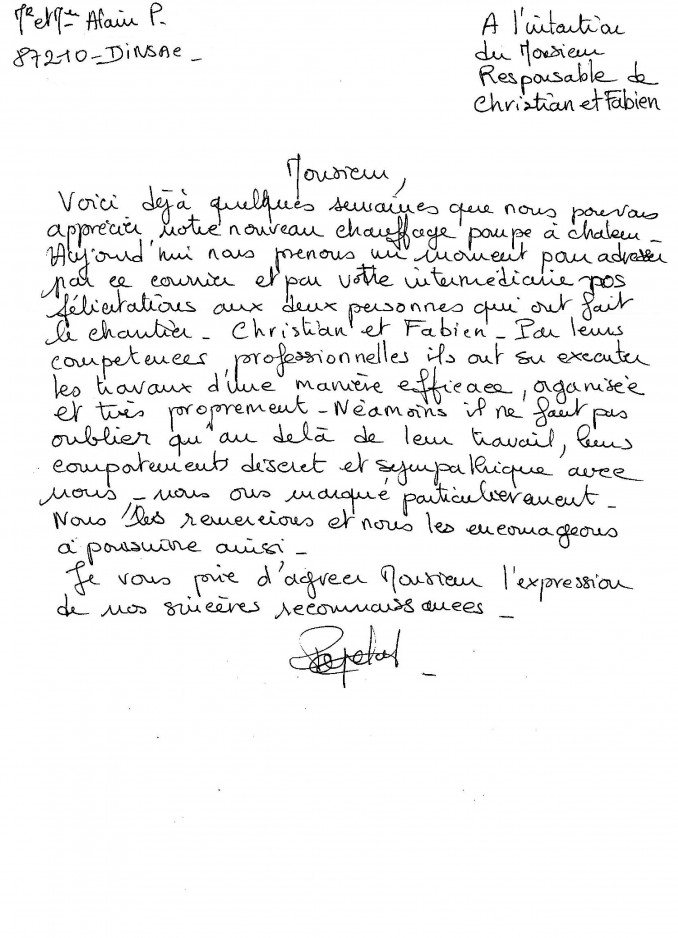 Mr et Mme Alain P.
87210 - DiNSAC -
A l'intention
du Monsieur
Responsable de
Christian et Fabien
Monsieur,
Voici déjà quelques semaines que nous pouvons
apprécier notre nouveau chauffage pompe à chaleur -
Aujourd'hui nous prenons un moment pour adresser
par ce courrier et par votre intermédiaire nos
félicitations aux deux personnes qui ont fait
le chantier - Christian et Fabien - Par leurs
competences professionnelles ils ont su executer
les travaux d'une manière efficace, organisée
et très proprement - Néamoins il ne faut pas
oublier qu'au delà de leur travail, leurs
comportements discret et sympathique avec
nous - nous ons marqué particulièrement -
Nous les remercions et nous les encourageons
à poursuivre ainsi -
Je vous prie d'agreer Monsieur l'expression
de nos sincères reconnaissances -